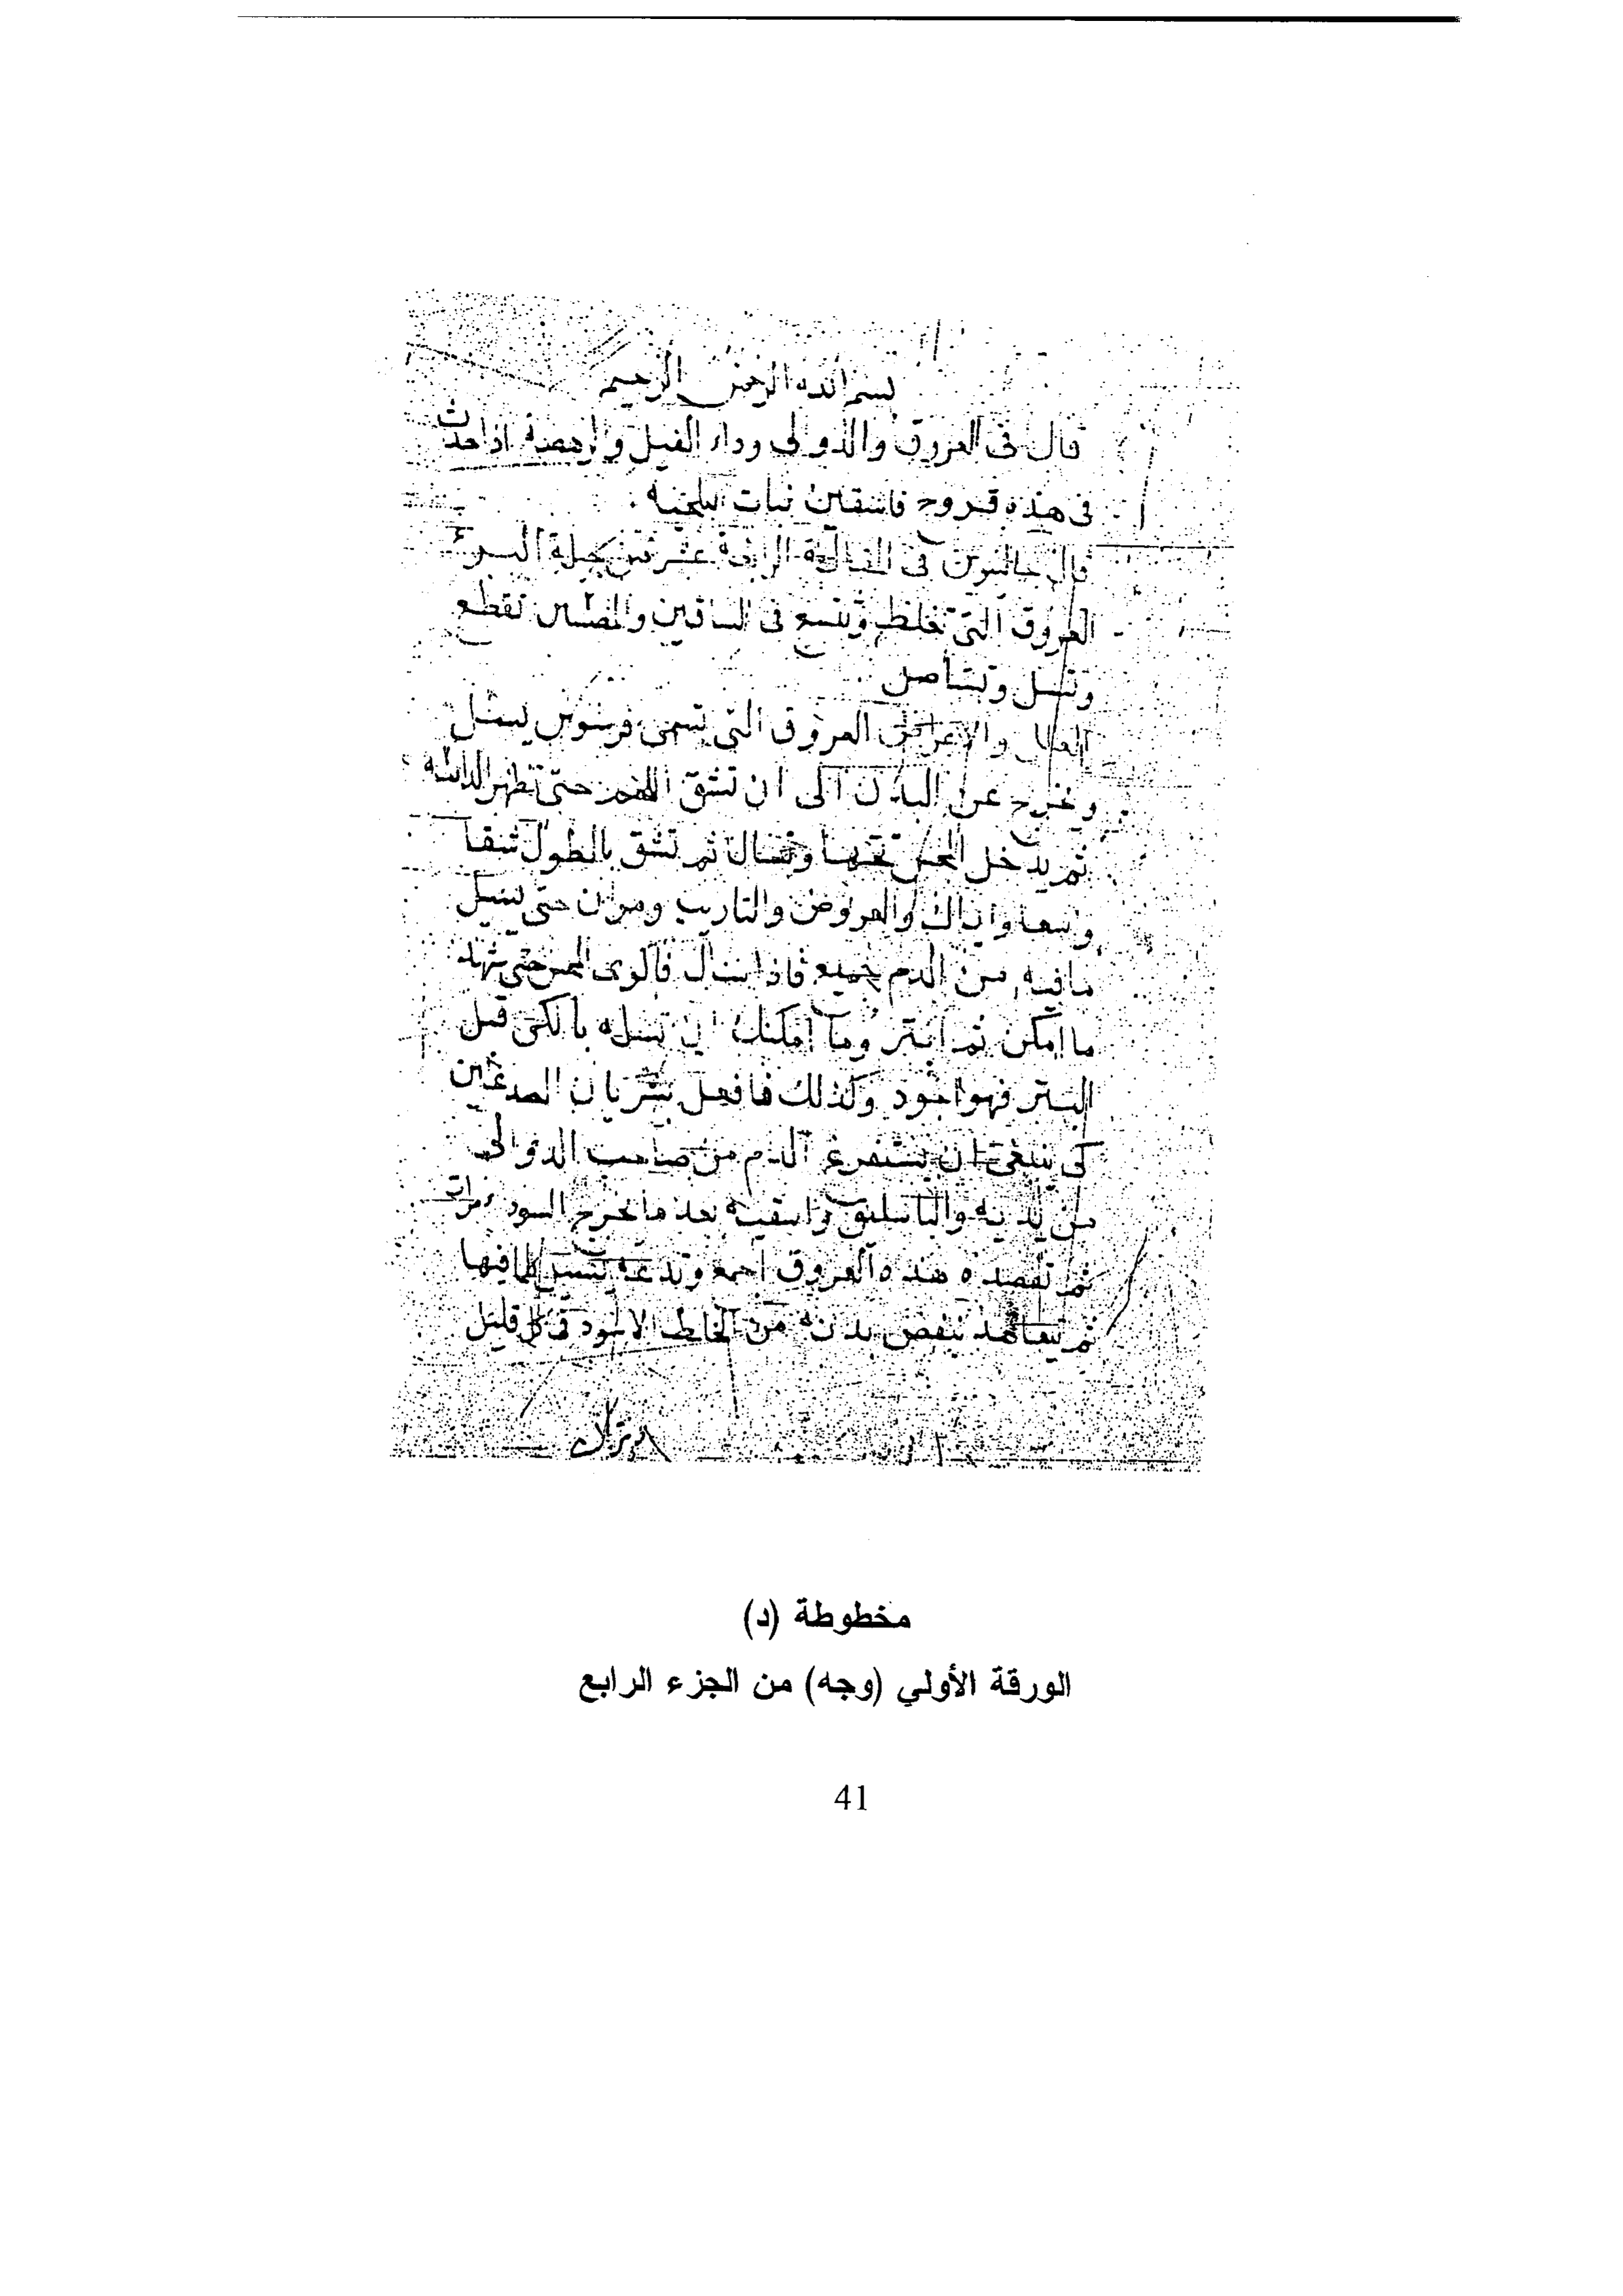 بسم الله الرحمن الرحيم
قال في العروق والدوالي وداء الفيل اذا حدث
في هذه قروح
قال جالينوس في المقالة الرابعة عشر من حيلة البرء
العروق التي تغلظ وتتسع في الساقين تقطع
وتسل وتستأصل
العروق التي تسمى يسل
ويخرج عن البدن الى ان تشق الجلد حتى تظهر الدالية
ثم يدخل المجس تحتها وتشال ثم تشق بالطول شقا
واسعا واياك والعروض والتاريب حتى يسيل
ما فيه من الدم جميعه فاذا سال المجس حتى
ما امكن ثم ابتر وما امكنك ان تسله بالكي قبل
البتر فهو اجود وكذلك فافعل بشريان الصدغين
ينبغي ان يستفرغ الدم من صاحب الدوالي
من يديه والباسليق واسقيه بعد ما يخرج السوداء مرات
ثم تفصده هذه العروق اجمع وتدعه يسيل كلما فيها
ثم تتعاهد بنفض بدنه من الخلط الاسود في كل قليل
مخطوطة (د)
الورقة الأولي (وجه) من الجزء الرابع
41